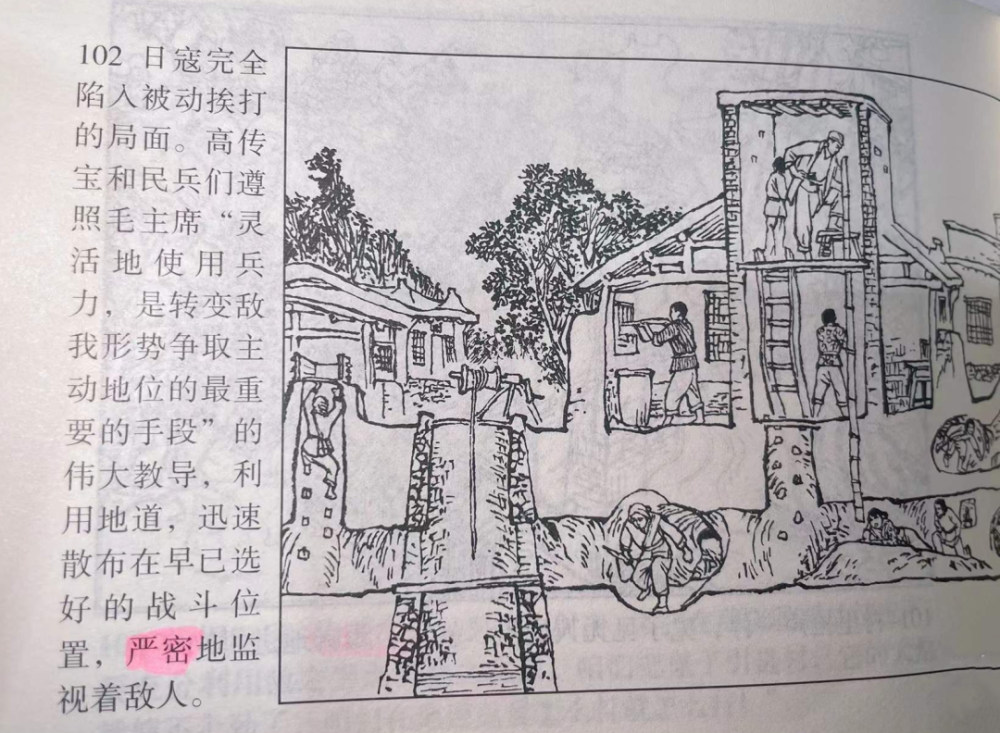 102 日寇完全
陷入被动挨打
的局面。高传
宝和民兵们遵
照毛主席“灵
活地使用兵
力，是转变敌
我形势争取主
动地位的最重
要的手段”的
伟大教导，利
用地道，迅速
散布在早已选
好的战斗位
置，严密地监
视着敌人。